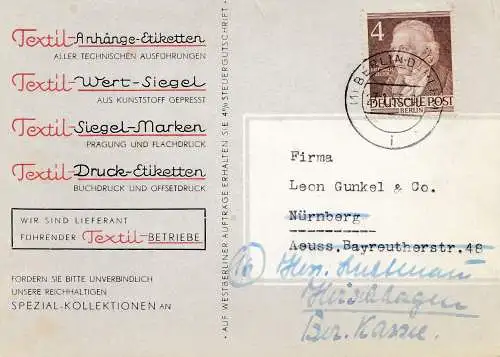 Textil-Anhänge-Etiketten
ALLER TECHNISCHEN AUSFÜHRUNGEN
Textil-Wert-Siegel
AUS KUNSTSTOFF GEPRESST
Textil-Siegel-Marken
PRÄGUNG UND FLACHDRUCK
Textil-Druck-Etiketten
BUCHDRUCK UND OFFSETDRUCK
WIR SIND LIEFERANT
FÜHRENDER Textil-BETRIEBE
FORDERN SIE BITTE UNVERBINDLICH
UNSERE REICHHALTIGEN
SPEZIAL-KOLLEKTIONEN AN
• AUF WESTBERLINER AUFTRÄGE ERHALTEN SIE 4% STEUERGUTSCHRIFT •
4
DEUTSCHE POST
BERLIN
(1) BERLIN
i
Firma
Leon Gunkel & Co.
Nürnberg
Aeuss.Bayreutherstr.48
Bez. Kassel